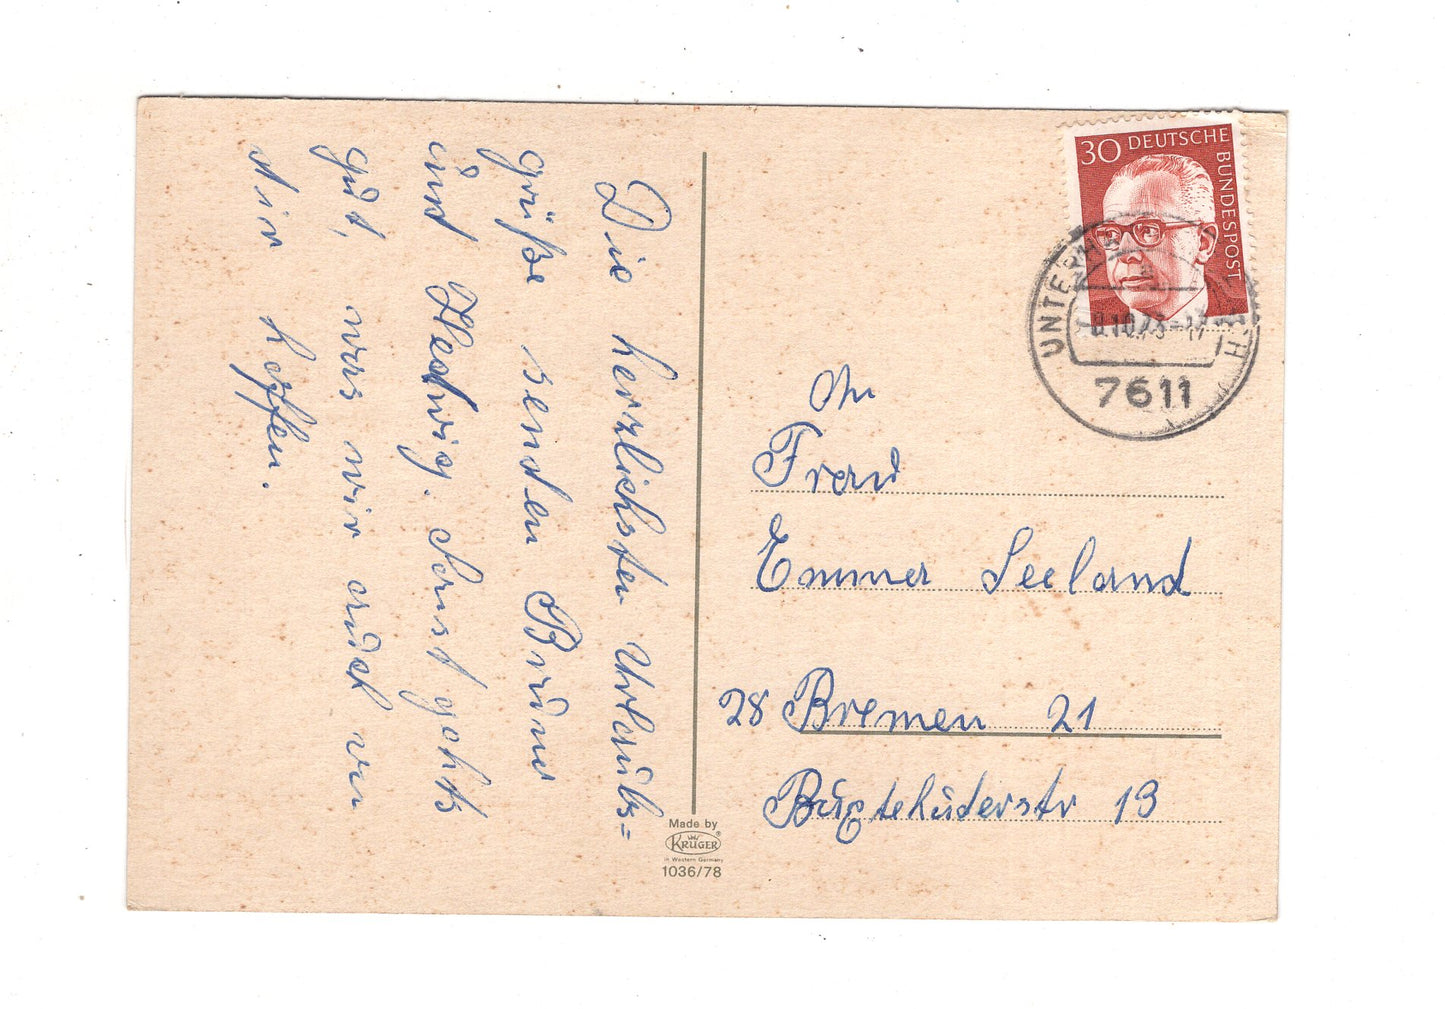 Die herzlichsten Urlaubs=
grüße senden Bruno
und Hedwig. Sonst gehts
gut, was wir auch von
dir hoffen.
Made by
KRÜGER®
in Western Germany
1036/78
30 DEUTSCHE BUNDESPOST
7611
An
Frau
Emmer Seeland
28 Bremen 21
Buxtehuderstr 13